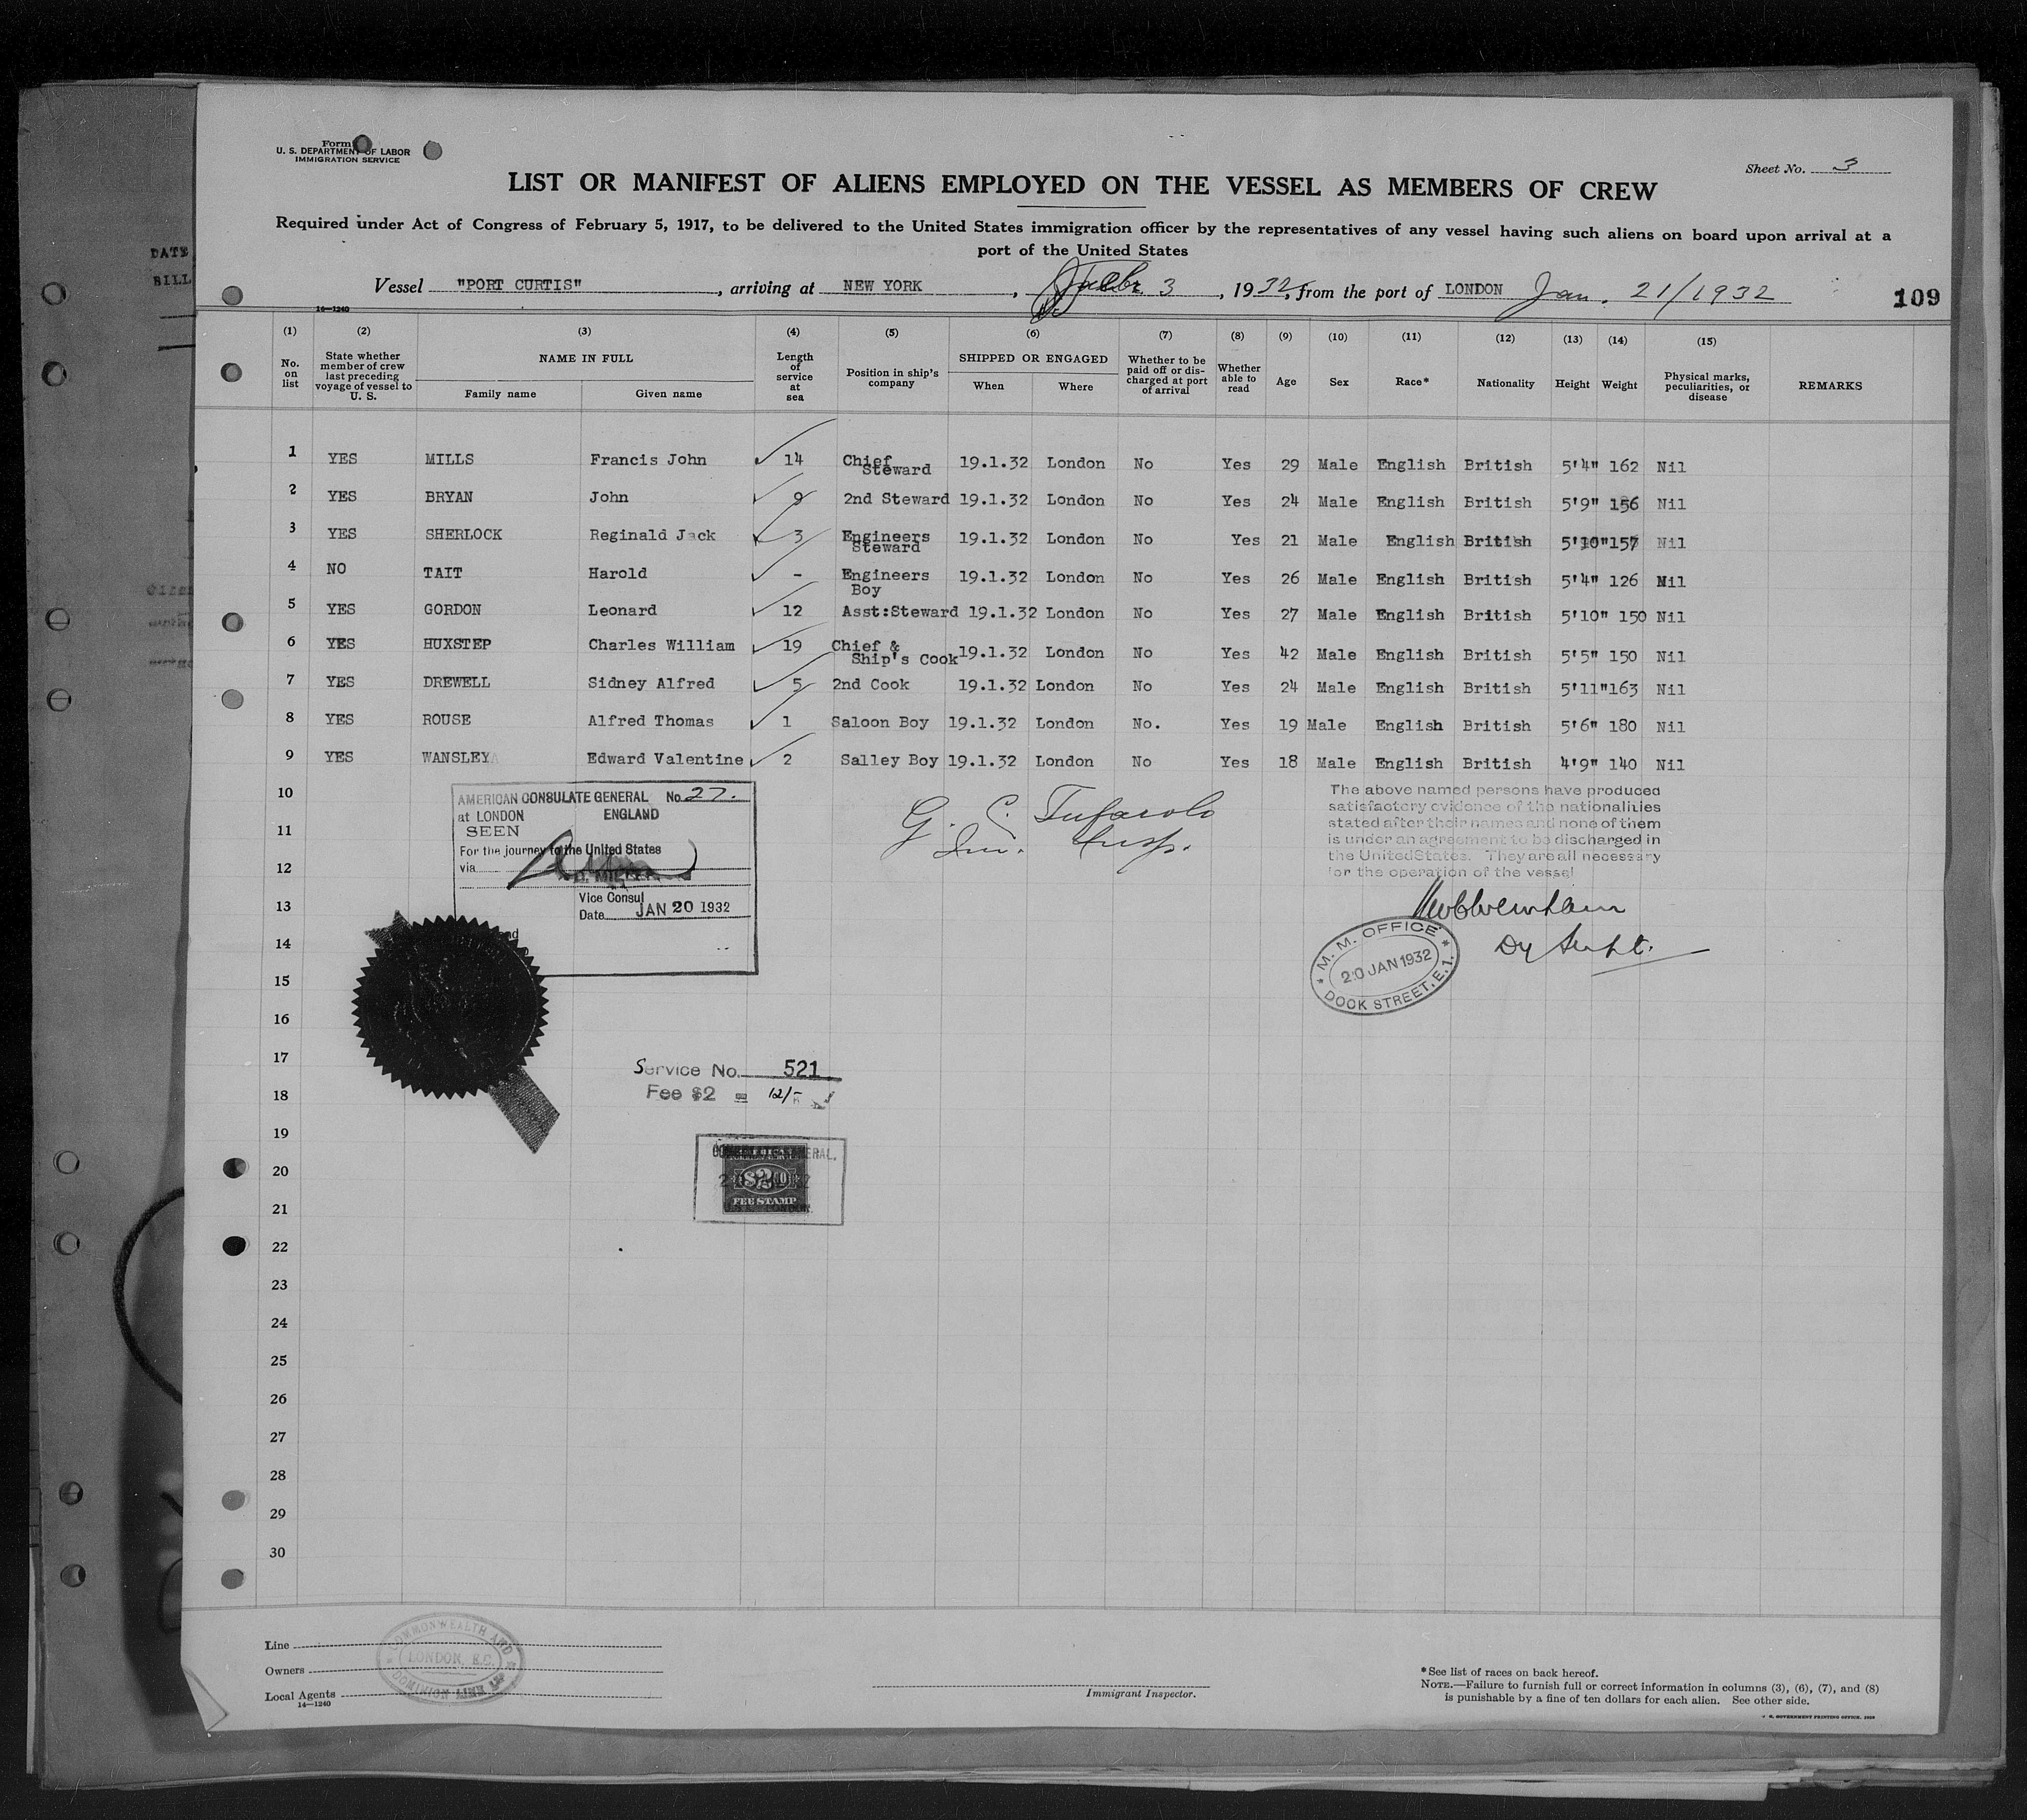 DATE
BILL
Form
U. S. DEPARTMENT OF LABOR
IMMIGRATION SERVICE
Sheet No. 3
LIST OR MANIFEST OF ALIENS EMPLOYED ON THE VESSEL AS MEMBERS OF CREW
Required under Act of Congress of February 5, 1917, to be delivered to the United States immigration officer by the representatives of any vessel having such aliens on board upon arrival at a
port of the United States
Vessel "PORT CURTIS", arriving at NEW YORK, Febr. 3, 1932, from the port of LONDON Jan. 21/1932
109
14—1240
(1) (2) (3) (4) (5) (6) (7) (8) (9) (10) (11) (12) (13) (14) (15)
No. on list State whether member of crew last preceding voyage of vessel to U. S. NAME IN FULL Family name Given name Length of service at sea Position in ship's company SHIPPED OR ENGAGED When Where Whether to be paid off or discharged at port of arrival Whether able to read Age Sex Race* Nationality Height Weight Physical marks, peculiarities, or disease REMARKS
1 YES MILLS Francis John 14 Chief Steward 19.1.32 London No Yes 29 Male English British 5'4" 162 Nil
2 YES BRYAN John 9 2nd Steward 19.1.32 London No Yes 24 Male English British 5'9" 156 Nil
3 YES SHERLOCK Reginald Jack 3 Engineers Steward 19.1.32 London No Yes 21 Male English British 5'10" 157 Nil
4 NO TAIT Harold - Engineers Boy 19.1.32 London No Yes 26 Male English British 5'4" 126 Nil
5 YES GORDON Leonard 12 Asst:Steward 19.1.32 London No Yes 27 Male English British 5'10" 150 Nil
6 YES HUXSTEP Charles William 19 Chief & Ship's Cook 19.1.32 London No Yes 42 Male English British 5'5" 150 Nil
7 YES DREWELL Sidney Alfred 5 2nd Cook 19.1.32 London No Yes 24 Male English British 5'11" 163 Nil
8 YES ROUSE Alfred Thomas 1 Saloon Boy 19.1.32 London No. Yes 19 Male English British 5'6" 180 Nil
9 YES WANSLEY Edward Valentine 2 Salley Boy 19.1.32 London No Yes 18 Male English British 4'9" 140 Nil
10
11
12
13
14
15
16
17
18
19
20
21
22
23
24
25
26
27
28
29
30
AMERICAN CONSULATE GENERAL No. 27.
at LONDON ENGLAND
SEEN
For the journey to the United States
via
Vice Consul
Date JAN 20 1932
G. C. Tufarolo
Im. Insp.
The above named persons have produced
satisfactory evidence of the nationalities
stated after their names and none of them
is under an agreement to be discharged in
the United States. They are all necessary
for the operation of the vessel
Dy Supt.
M. M. OFFICE
20 JAN 1932
DOCK STREET, E.1.
Service No. 521
Fee $2 = 12/
FEE STAMP
Line
Owners
Local Agents
14—1240
COMMONWEALTH AND
LONDON, E.C.
DOMINION LINE LTD
Immigrant Inspector.
*See list of races on back hereof.
NOTE.—Failure to furnish full or correct information in columns (3), (6), (7), and (8)
is punishable by a fine of ten dollars for each alien. See other side.